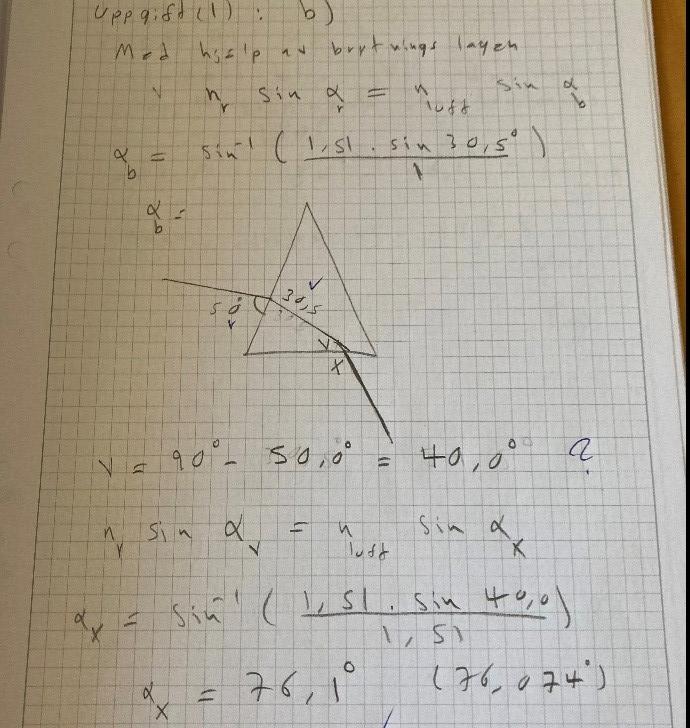 Uppgift(1): b)
Med hjälp av brytningslagen
n_r sin α_r = n_luft sin α_b
α_b = sin⁻¹ ( 1,51 · sin 30,5° / 1 )
α_b =
50° 30,5 v
v
x
v = 90° - 50,0° = 40,0° ?
n_v sin α_v = n_luft sin α_x
α_x = sin⁻¹ ( 1,51 · sin 40,0 / 1,51 )
α_x = 76,1° (76,074°)